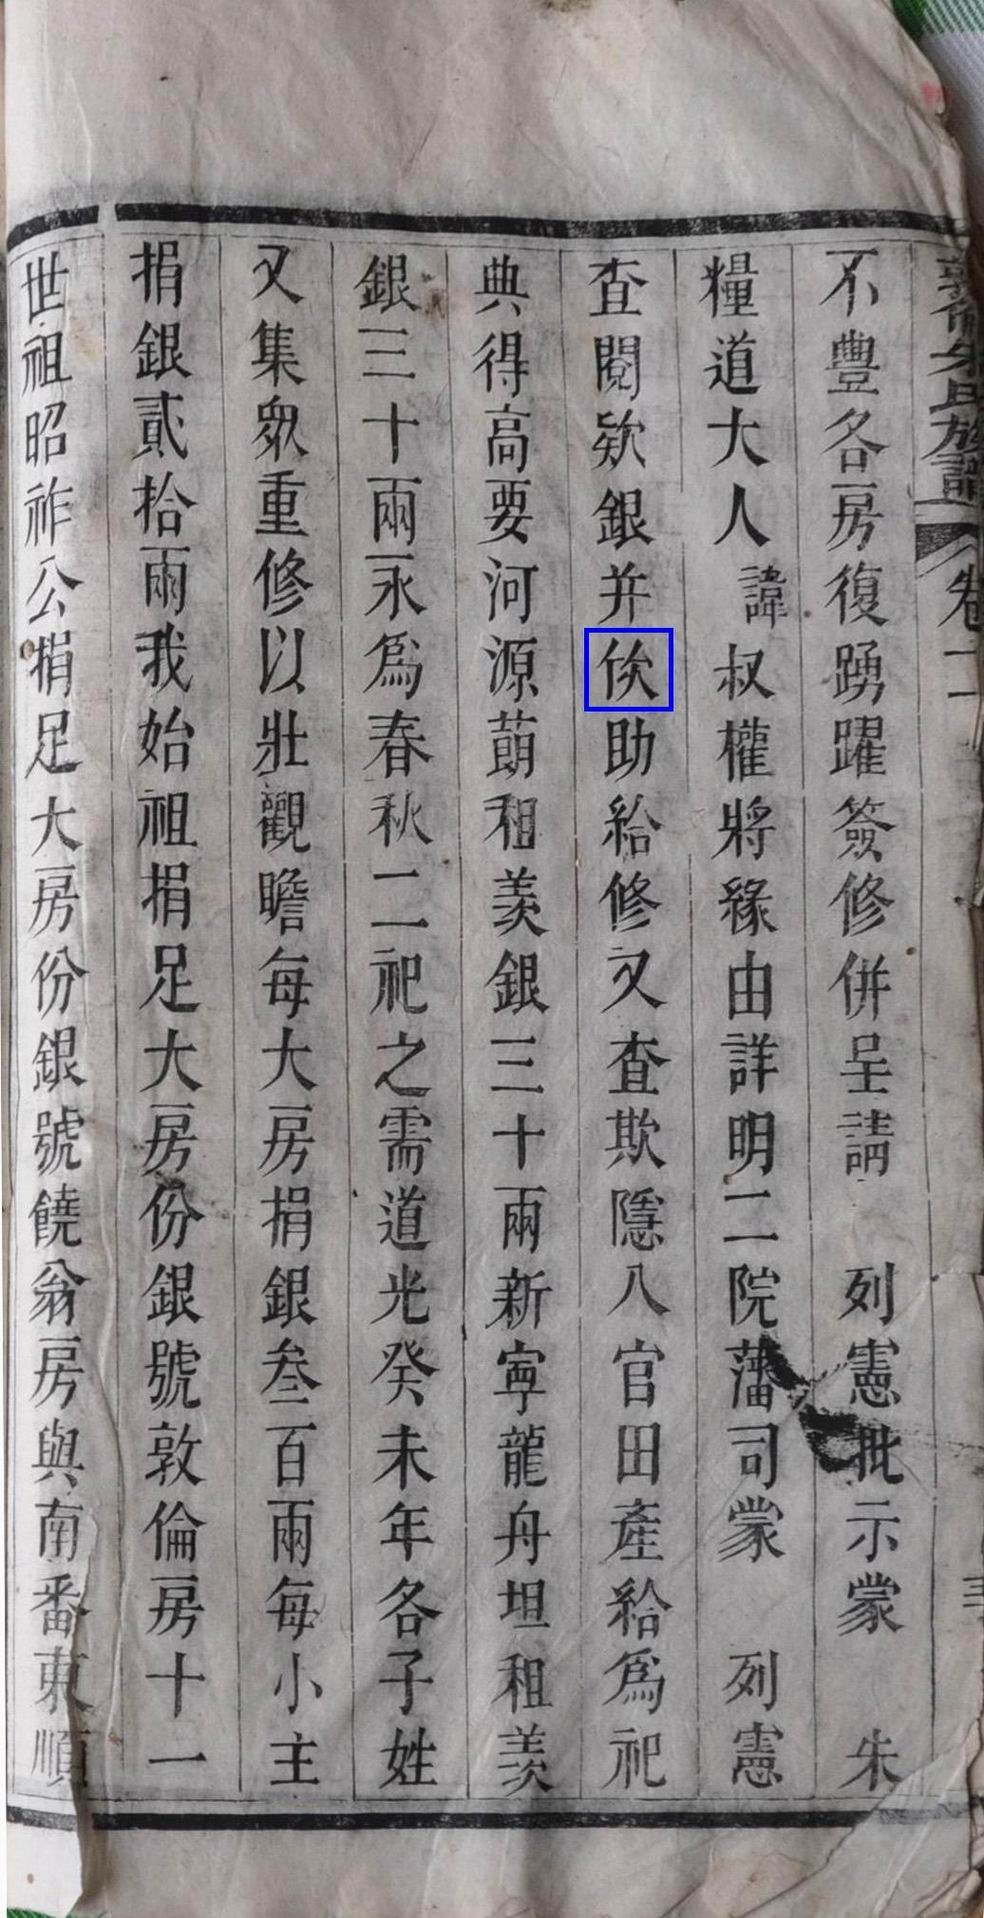 敦倫朱氏族譜 卷二 三
不豐各房復踴躍簽修併呈請 列憲批示蒙 朱
糧道大人 諱叔權將緣由詳明二院藩司蒙 列憲
查閱欵銀并佽助給修又查欺隱八官田產給爲祀
典得高要河源蓢租羡銀三十兩新寧龍舟坦租羡
銀三十兩永爲春秋二祀之需道光癸未年各子姓
又集眾重修以壯觀瞻每大房捐銀叁百兩每小主
捐銀貳拾兩我始祖捐足大房份銀號敦倫房十一
世祖昭祚公捐足大房份銀號饒翁房與南番東順